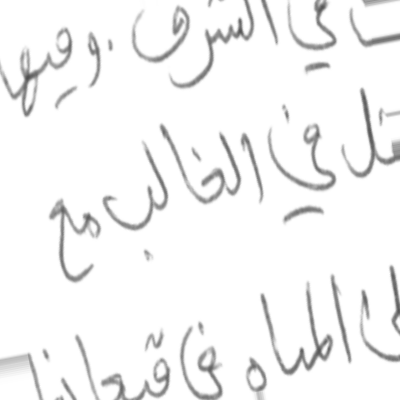 في الشرق. وفيها
في الغالب مع
المياه في قيعانها